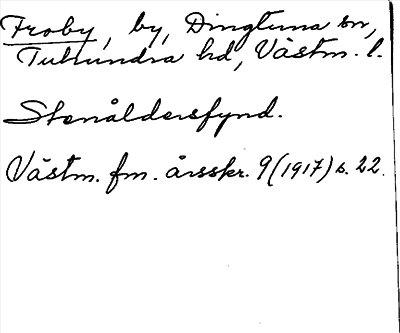 Froby, by, Dingtuna sn,
Tuhundra hd, Västm. l.
Stenåldersfynd.
Västm. fm. årsskr. 9 (1917) s. 22.